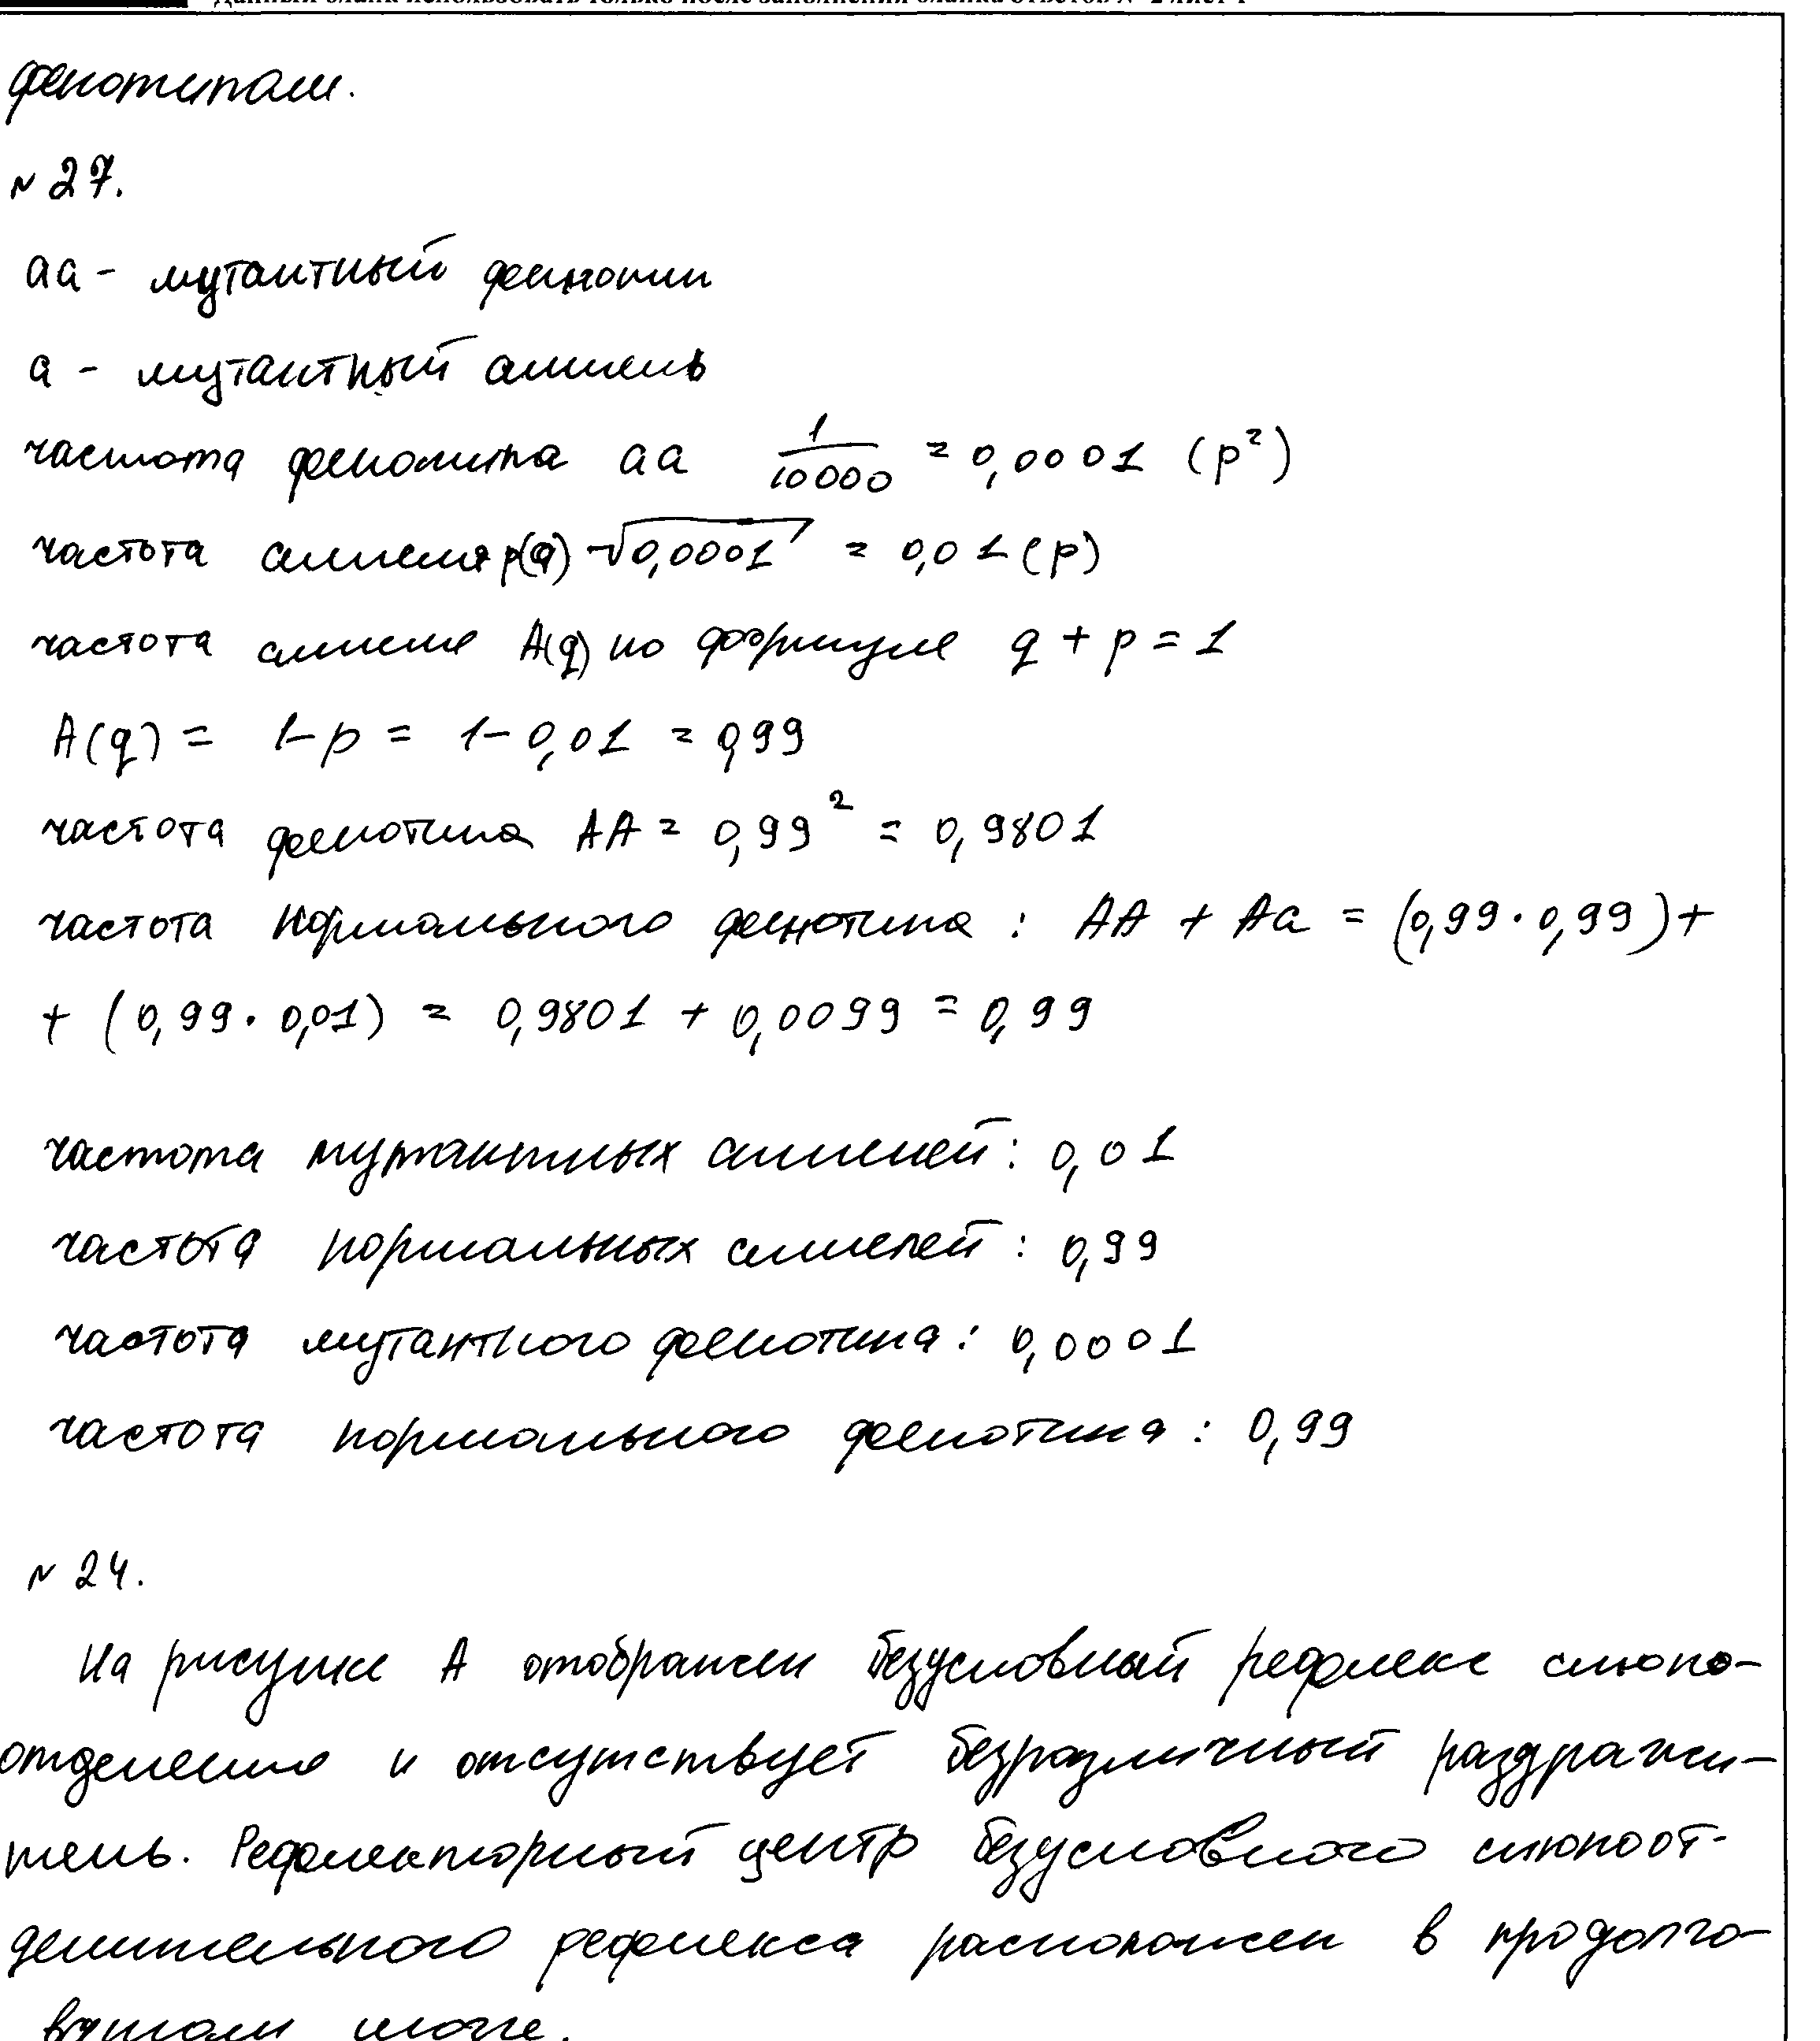 Данный бланк использовать только после заполнения бланка ответов № 2 лист 1
фенотипам.
№ 27.
аа - мутантный фенотип
а - мутантный аллель
частота фенотипа аа 1/10000 = 0,0001 (p²)
частота аллеля p(a) √0,0001 = 0,01 (p)
частота аллеля A(q) по формуле q + p = 1
A(q) = 1-p = 1-0,01 = 0,99
частота фенотипа AA = 0,99² = 0,9801
частота нормального фенотипа : AA + Aa = (0,99·0,99)+
+ (0,99·0,01) = 0,9801 + 0,0099 = 0,99
частота мутантных аллелей: 0,01
частота нормальных аллелей : 0,99
частота мутантного фенотипа: 0,0001
частота нормального фенотипа : 0,99
№ 24.
На рисунке А отображен безусловный рефлекс слюно-
отделения и отсутствует безразличный раздражи-
тель. Рефлекторный центр безусловного слюноот-
делительного рефлекса расположен в продолго-
ватом мозге.